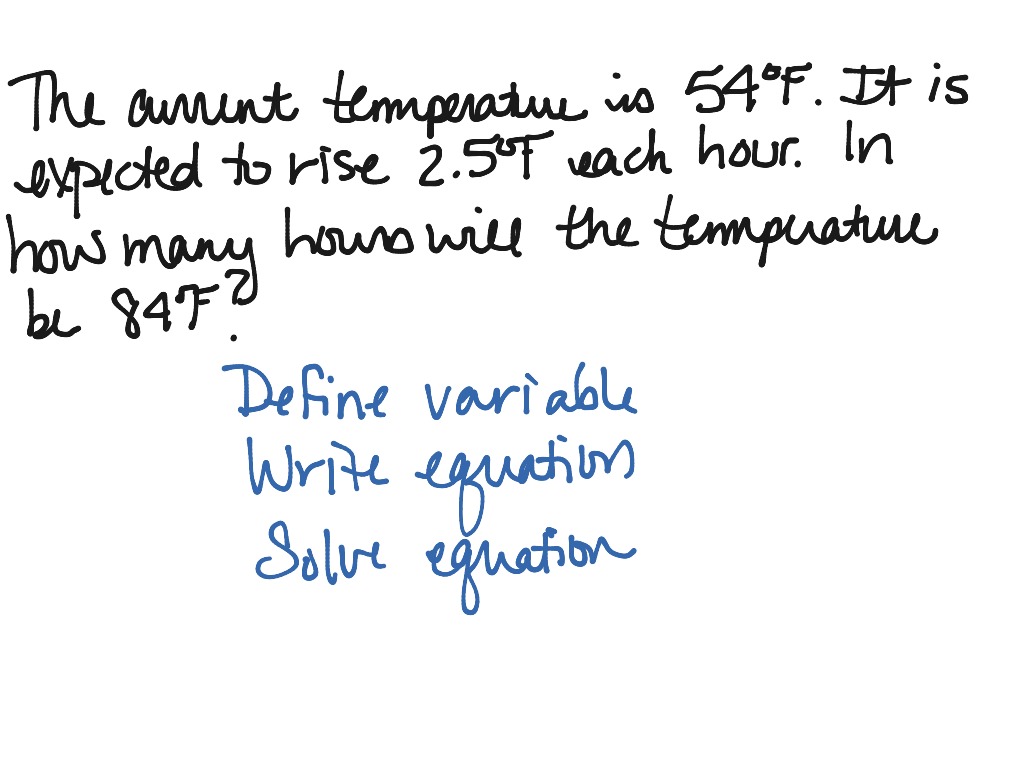 The current temperature is 54°F. It is
expected to rise 2.5°F each hour. In
how many hours will the temperature
be 84°F?
Define variable
Write equation
Solve equation